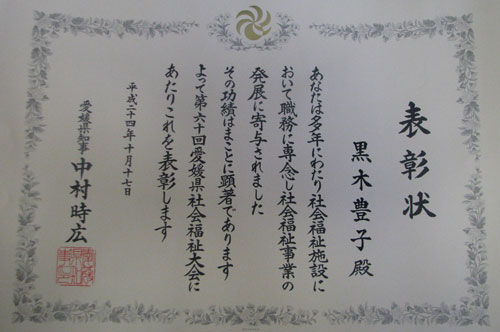 表彰状
黒木豊子殿
あなたは多年にわたり社会福祉施設に
おいて職務に専念し社会福祉事業の
発展に寄与されました
その功績はまことに顕著であります
よって第六十回愛媛県社会福祉大会に
あたりこれを表彰します
平成二十四年十月十七日
愛媛県知事 中村時広